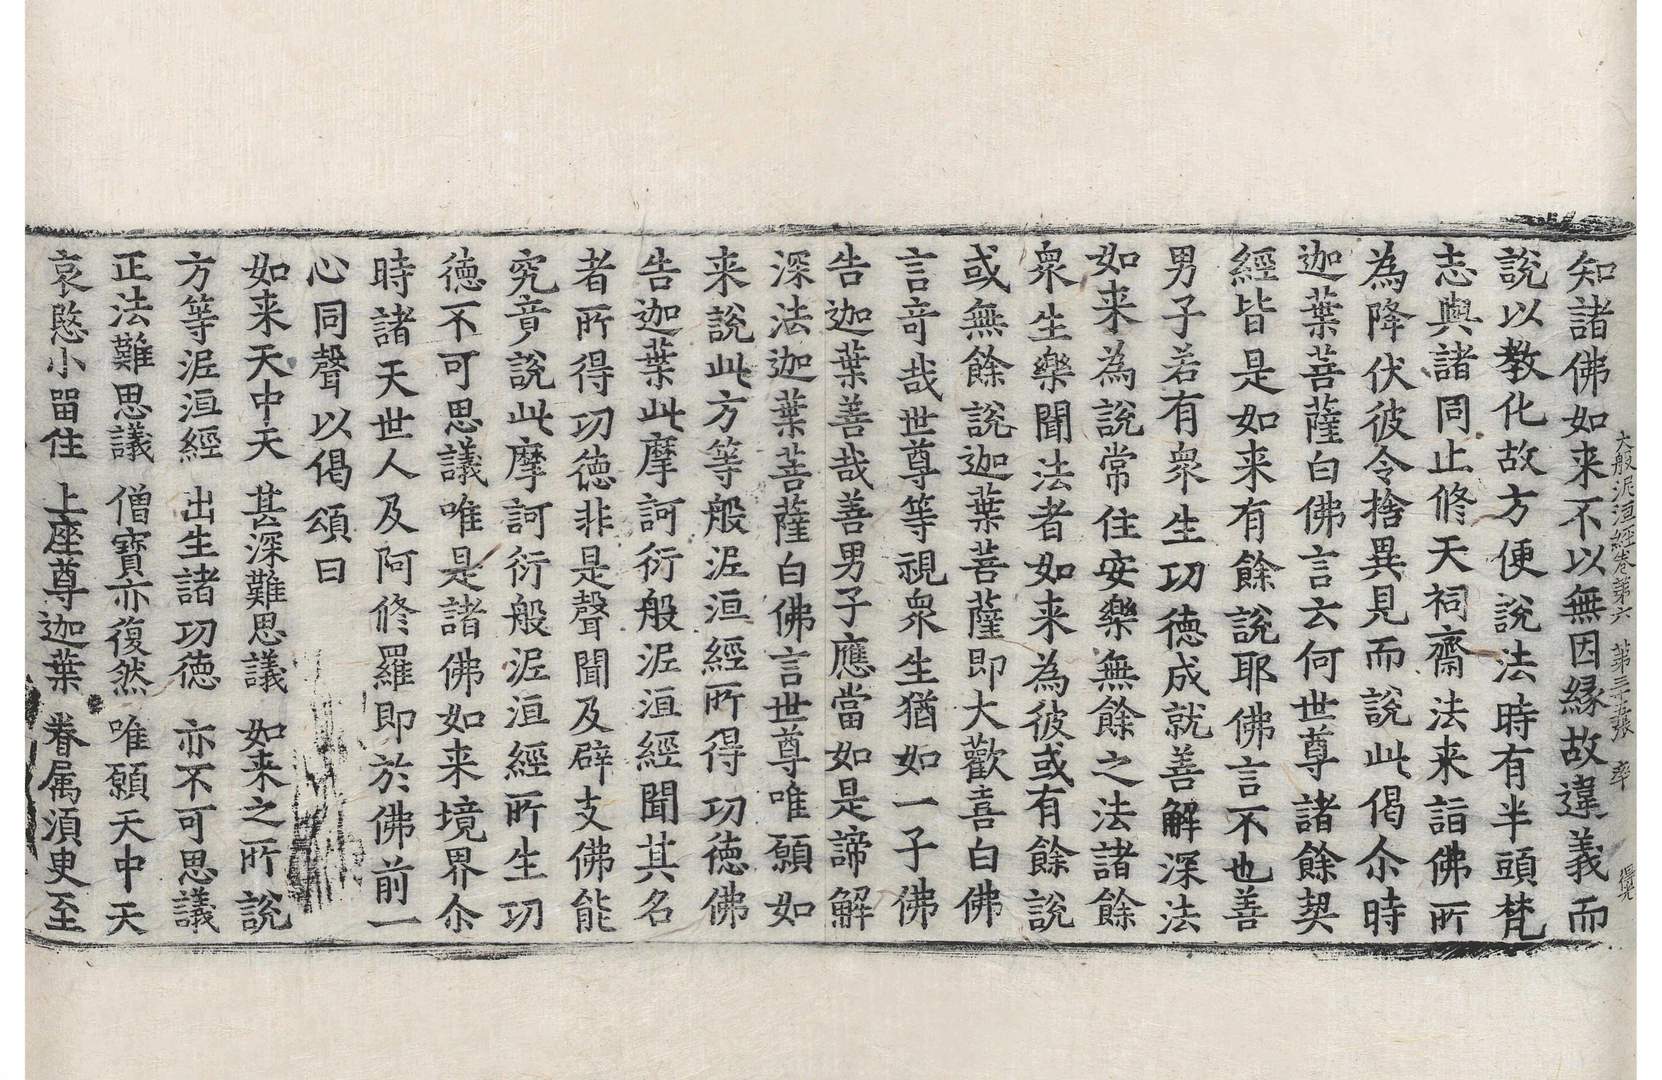 大般泥洹經卷第六 第三十五張 率
知諸佛如来不以無因緣故違義而
說以教化故方便說法時有半頭梵
志與諸同止修天祠齋法来詣佛所
為降伏彼令捨異見而說此偈尒時
迦葉菩薩白佛言云何世尊諸餘契
經皆是如来有餘說耶佛言不也善
男子若有衆生功徳成就善解深法
如来為說常住安樂無餘之法諸餘
衆生樂聞法者如来為彼或有餘說
或無餘說迦葉菩薩即大歡喜白佛
言竒哉世尊等視衆生猶如一子佛
告迦葉善哉善男子應當如是諦解
深法迦葉菩薩白佛言世尊唯願如
来說此方等般泥洹經所得功徳佛
告迦葉此摩訶衍般泥洹經聞其名
者所得功徳非是聲聞及辟支佛能
究竟說此摩訶衍般泥洹經所生功
徳不可思議唯是諸佛如来境界尒
時諸天世人及阿修羅即於佛前一
心同聲以偈頌曰
如来天中天 甚深難思議 如来之所說
方等泥洹經 出生諸功徳 亦不可思議
正法難思議 僧寶亦復然 唯願天中天
哀愍小留住 上座尊迦葉 眷属湏臾至